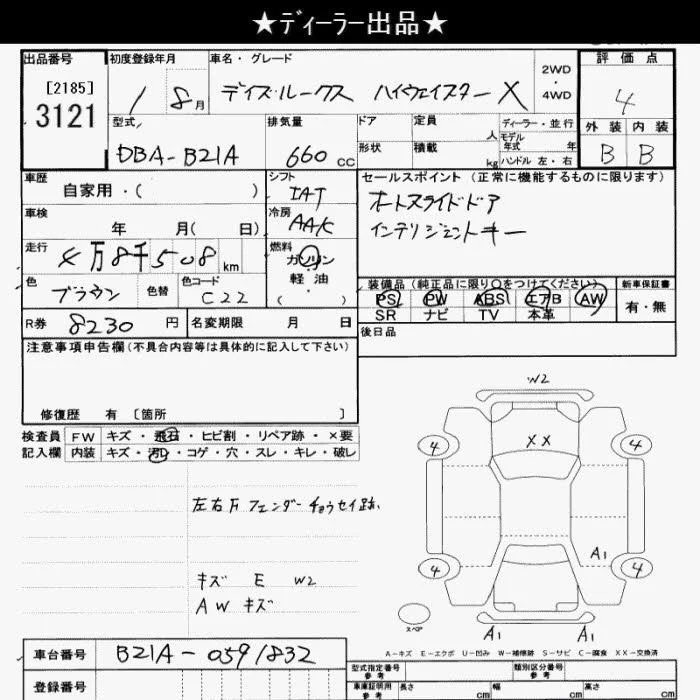 ★ディーラー出品★
出品番号
[2185]
3121
初度登録年月
1 8月
車名・グレード
デイズ・ルークス ハイウェイスターX
2WD
・
4WD
評価点
4
外装 内装
B B
型式
DBA-B21A
排気量
660 cc
ドア
形状
定員 人
積載 kg
ディーラー・並行
モデル年式 年
ハンドル 左・右
車歴
自家用・( )
シフト
IAT
車検
年 月( 日)
冷房
AAC
走行
4万8千508 km
燃料
ガソリン
軽・油
( )
色
ブラウン
色替
色コード
C22
R券
8230 円
名変期限 月 日
セールスポイント (正常に機能するものに限ります)
オートスライドドア
インテリジェントキー
装備品(純正品に限り○をつけてください)
PS PW ABS エアB AW
SR ナビ TV 本革
新車保証書
有・無
後日品
注意事項申告欄(不具合内容等は具体的に記入して下さい)
修復歴 有 〔箇所 〕
検査員
記入欄
FW キズ・飛石・ヒビ割・リペア跡・×要
内装 キズ・汚レ・コゲ・穴・スレ・キレ・破レ
左右Fフェンダーチョウセイ跡
キズ E W2
AW キズ
W2
XX
4 4
A1
4 4
スペア
A1 A1
A-キズ E-エクボ U-凹み W-補修跡 S-サビ C-腐食 XX-交換済
車台番号
B21A-0591832
登録番号
型式指定番号
類別区分番号
車庫証明用参考
長さ cm
幅 cm
高さ cm